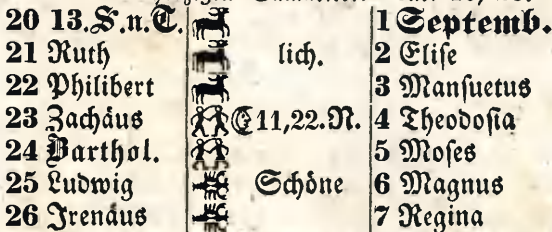 20 13.S.n.T. 1 Septemb.
21 Ruth lich. 2 Elise
22 Philibert 3 Mansuetus
23 Zachäus 11,22.N. 4 Theodosia
24 Barthol. 5 Moses
25 Ludwig Schöne 6 Magnus
26 Irenäus 7 Regina